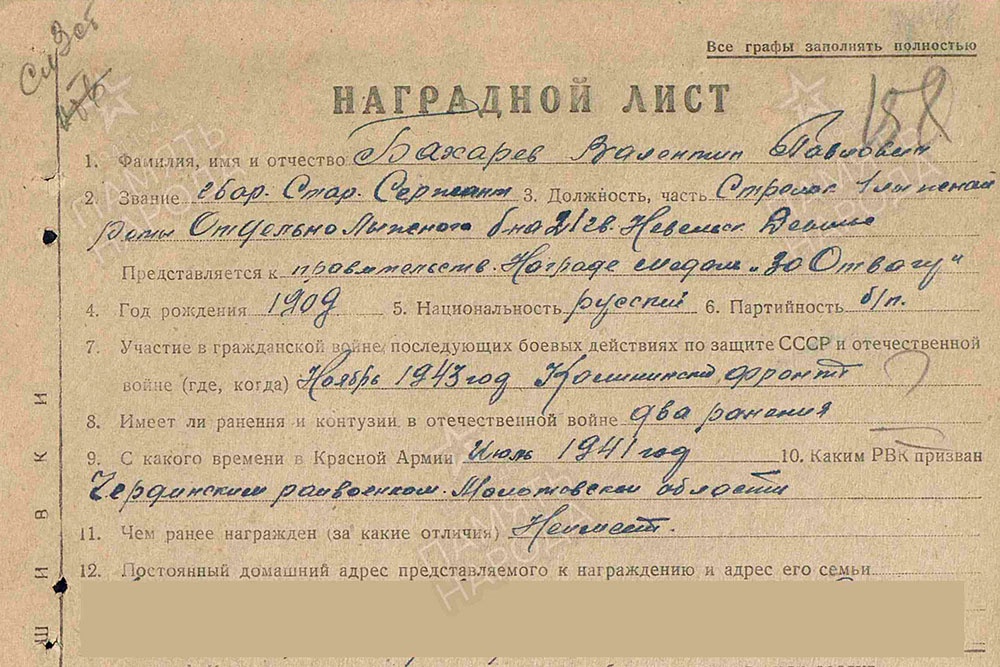 Все графы заполнять полностью
158
НАГРАДНОЙ ЛИСТ
1. Фамилия, имя и отчество Бахарев Валентин Павлович
2. Звание Стар. Сержант 3. Должность, часть Стрелок
Роты Отдельно Лыжного б-на 21 гв. Невельск.
Представляется к правительств. Награде медаль „За Отвагу“
4. Год рождения 1909 5. Национальность русский 6. Партийность б/п.
7. Участие в гражданской войне, последующих боевых действиях по защите СССР и отечественной
войне (где, когда) Ноябрь 1943 год Калининский фронт
8. Имеет ли ранения и контузии в отечественной войне два ранения
9. С какого времени в Красной Армии Июль 1941 год 10. Каким РВК призван
Чердинским райвоенком. Молотовской области
11. Чем ранее награжден (за какие отличия) Неимеет.
12. Постоянный домашний адрес представляемого к награждению и адрес его семьи
ПАМЯТЬ НАРОДА